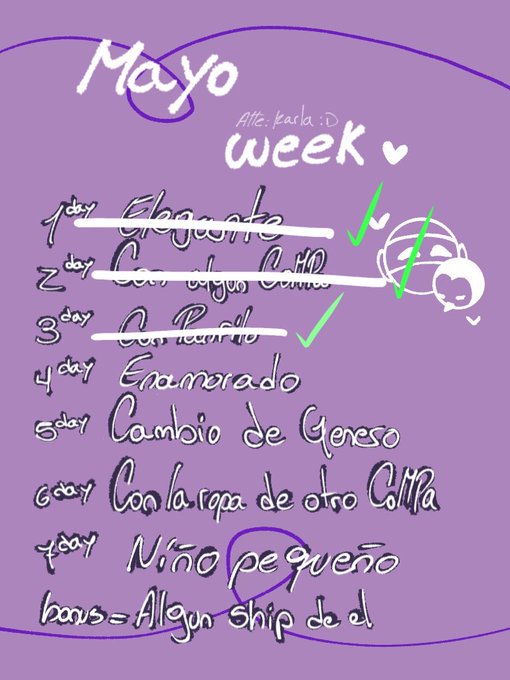 Mayo
Atte: Karla :D
week
1 day Elegante
2 day Con algun CoMPa
3 day Con Panfilo
4 day Enamorado
5 day Cambio de Generso
6 day Con la ropa de otro CoMPa
7 day Niño pequeño
bonus = Algun ship de el